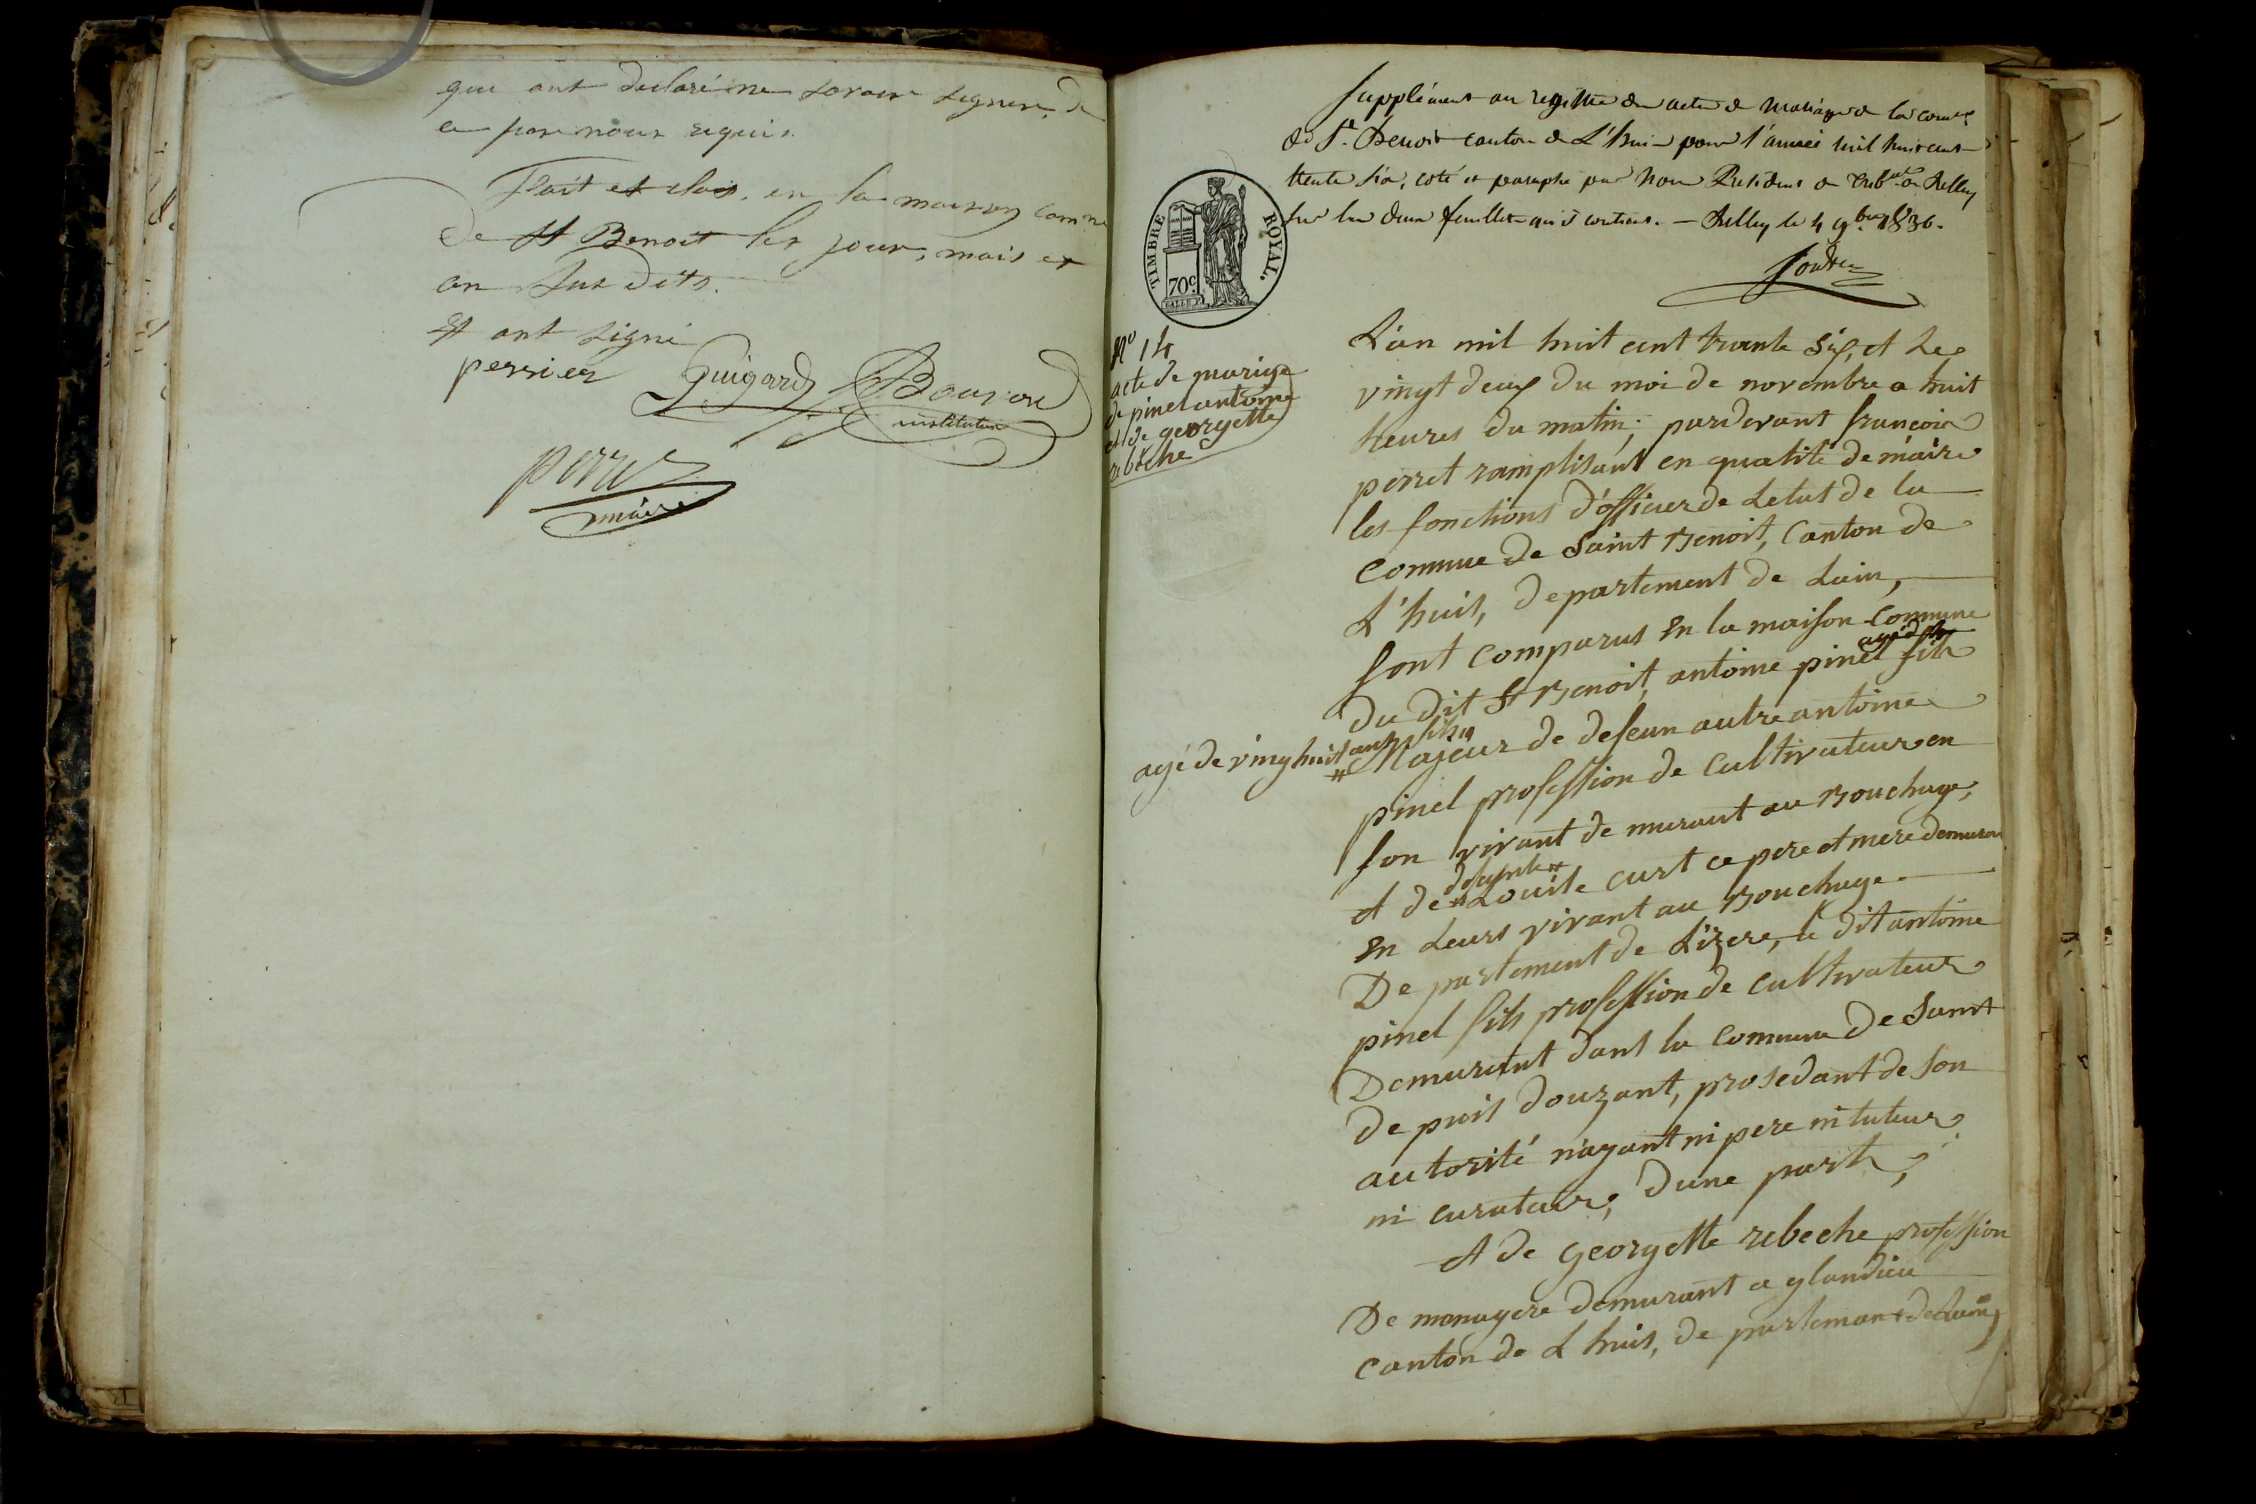 que ont declaré ne savoir signer, de
ce par nous requis.
Fait et clos, en la maison comne
de St Benoit les jour, mois et
an sus dits.
Et ont signé
perrier Guigard Bouvard
instituteur
perret
maire
Supplément au registre des actes de mariage de la comne
de St. Benoit canton de L'huis pour l'année mil huit cent
trente six, coté et paraphé par Nous Président du tribal de Belley
sur les deux feuillets qu'il contient. — Belley le 4 9bre 1836.
TIMBRE ROYAL.
70c.
No 14
acte de mariage
de pinel antoine
et de georgette
rebeche
L'an mil huit cent trante six, et le
vingt deux du moi de novembre a huit
heures du matin; pardevant françois
perret ramplisant en qualité de maire
les fonctions d'officier de Letat de la
commue de Saint Benoit, Canton de
L'huis, departement de Lain,
sont comparus En la maison commune
agé de
du dit St Benoit, antoine pinel fils
agé de ving huit ans fils #
# Majeur de defeun autre antoine
pinel profession de cultivateur en
son vivant demurant au Bouchage,
defunte #
et de # Louise curt ce pere et mere demuran
En Leurs vivant au Bouchage
Departement de Lizere, le dit antoine
pinel fils profession de cultivateur
Demurant dant la commune de Saint
de puis douzant, prosedant de son
autorité n'ayant ni pere ni tuteur
ni curateur, dune part,
et de georgette rebeche profession
De menagere demurant a glandieu
canton de L huis, de partemant de Lain,